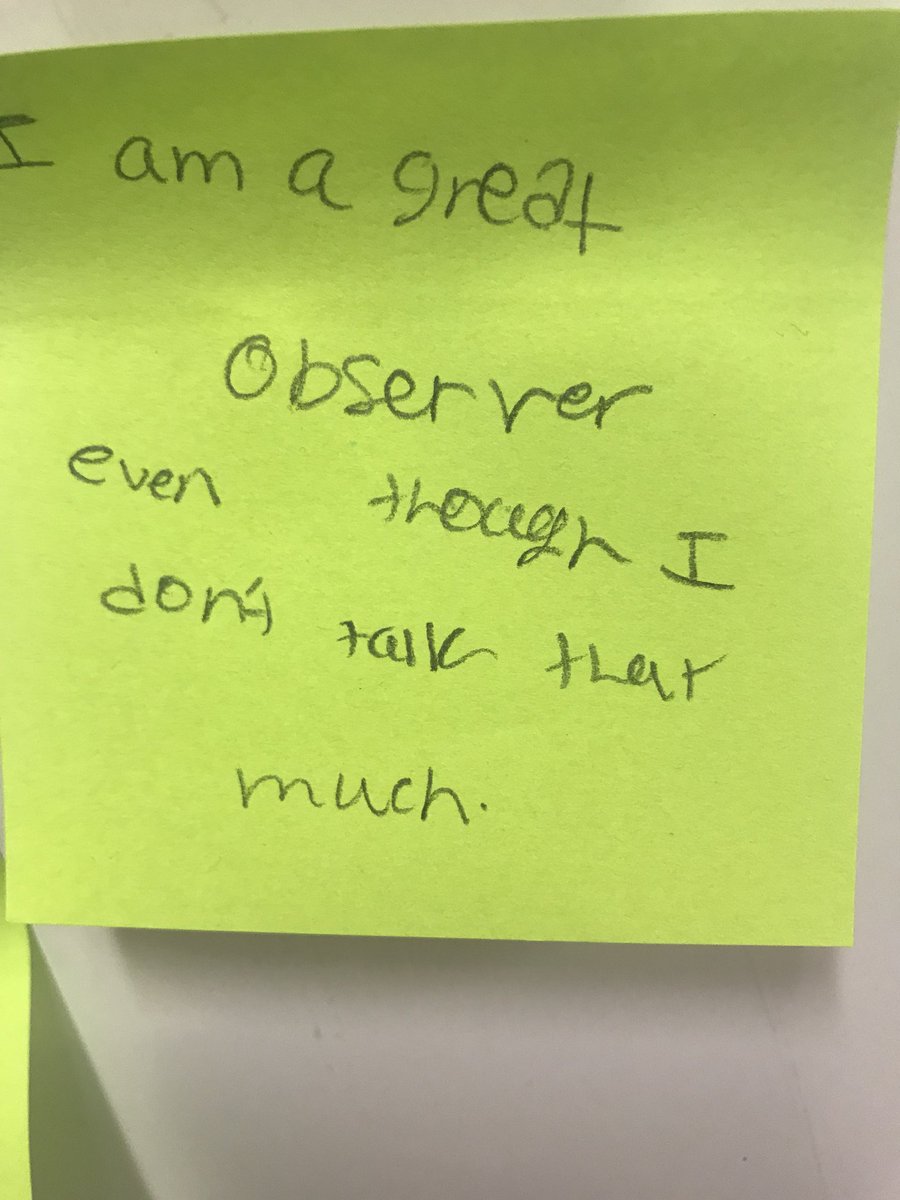 I am a great
Observer
even though I
don't talk that
much.